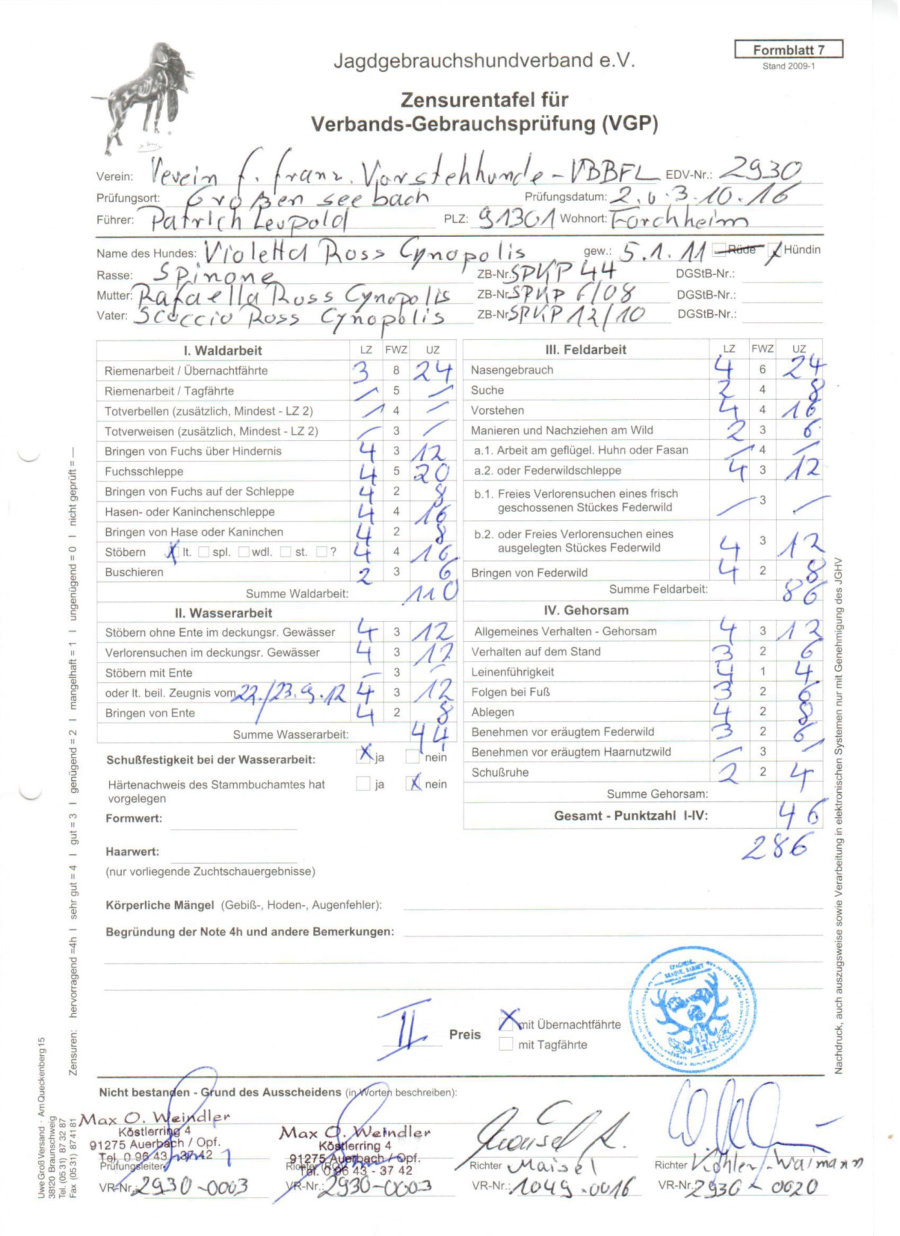 Formblatt 7
Stand 2009-1
Jagdgebrauchshundverband e.V.
Zensurentafel für
Verbands-Gebrauchsprüfung (VGP)
Verein: Verein f. franz. Vorstehhunde - VBBFL EDV-Nr.: 2930
Prüfungsort: Großenseebach Prüfungsdatum: 2. u. 3.10.16
Führer: Patrich Leupold PLZ: 91301 Wohnort: Forchheim
Name des Hundes: Violetta Ross Cynopolis gew.: 5.1.11 Rüde X Hündin
Rasse: Spinone ZB-Nr. SPVKP 44 DGStB-Nr.:
Mutter: Rafaella Ross Cynopolis ZB-Nr. 6/08 DGStB-Nr.:
Vater: Scoccio Ross Cynopolis ZB-Nr. 12/10 DGStB-Nr.:
I. Waldarbeit LZ FWZ UZ
Riemenarbeit / Übernachtfährte 3 8 24
Riemenarbeit / Tagfährte / 5 /
Totverbellen (zusätzlich, Mindest - LZ 2) / 4 /
Totverweisen (zusätzlich, Mindest - LZ 2) / 3 /
Bringen von Fuchs über Hindernis 4 3 12
Fuchsschleppe 4 5 20
Bringen von Fuchs auf der Schleppe 4 2 8
Hasen- oder Kaninchenschleppe 4 4 16
Bringen von Hase oder Kaninchen 4 2 8
Stöbern X lt. spl. wdl. st. ? 4 4 16
Buschieren 2 3 6
Summe Waldarbeit: 110
II. Wasserarbeit
Stöbern ohne Ente im deckungsr. Gewässer 4 3 12
Verlorensuchen im deckungsr. Gewässer 4 3 12
Stöbern mit Ente / 3 /
oder lt. beil. Zeugnis vom 22./23.9.12 4 3 12
Bringen von Ente 4 2 8
Summe Wasserarbeit: 44
Schußfestigkeit bei der Wasserarbeit: X ja nein
Härtenachweis des Stammbuchamtes hat ja X nein
vorgelegen
Formwert:
Haarwert:
(nur vorliegende Zuchtschauergebnisse)
III. Feldarbeit LZ FWZ UZ
Nasengebrauch 4 6 24
Suche 2 4 8
Vorstehen 4 4 16
Manieren und Nachziehen am Wild 2 3 6
a.1. Arbeit am geflügel. Huhn oder Fasan / 4 /
a.2. oder Federwildschleppe 4 3 12
b.1. Freies Verlorensuchen eines frisch
geschossenen Stückes Federwild / 3 /
b.2. oder Freies Verlorensuchen eines
ausgelegten Stückes Federwild 4 3 12
Bringen von Federwild 4 2 8
Summe Feldarbeit: 86
IV. Gehorsam
Allgemeines Verhalten - Gehorsam 4 3 12
Verhalten auf dem Stand 3 2 6
Leinenführigkeit 4 1 4
Folgen bei Fuß 3 2 6
Ablegen 4 2 8
Benehmen vor eräugtem Federwild 3 2 6
Benehmen vor eräugtem Haarnutzwild / 3 /
Schußruhe 2 2 4
Summe Gehorsam: 46
Gesamt - Punktzahl I-IV:
286
Körperliche Mängel (Gebiß-, Hoden-, Augenfehler):
Begründung der Note 4h und andere Bemerkungen:
II Preis X mit Übernachtfährte
mit Tagfährte
Nicht bestanden - Grund des Ausscheidens (in Worten beschreiben):
Max O. Weindler
Köstlerring 4
91275 Auerbach / Opf.
Tel. 0 96 43 - 37 42
Prüfungsleiter
VR-Nr. 2930-0003
Max O. Weindler
Köstlerring 4
91275 Auerbach / Opf.
Tel. 0 96 43 - 37 42
VR-Nr.: 2930-0003
Richter Maisel
VR-Nr.: 1049-0016
Richter Köhler-Waimann
VR-Nr. 2930-0020
Zensuren: hervorragend =4h I sehr gut = 4 I gut = 3 I genügend = 2 I mangelhaft = 1 I ungenügend = 0 I nicht geprüft = —
Nachdruck, auch auszugsweise sowie Verarbeitung in elektronischen Systemen nur mit Genehmigung des JGHV
Uwe Groß Versand · Am Queckenberg 15
38120 Braunschweig
Tel. (05 31) 87 32 87
Fax (05 31) 87 41 81